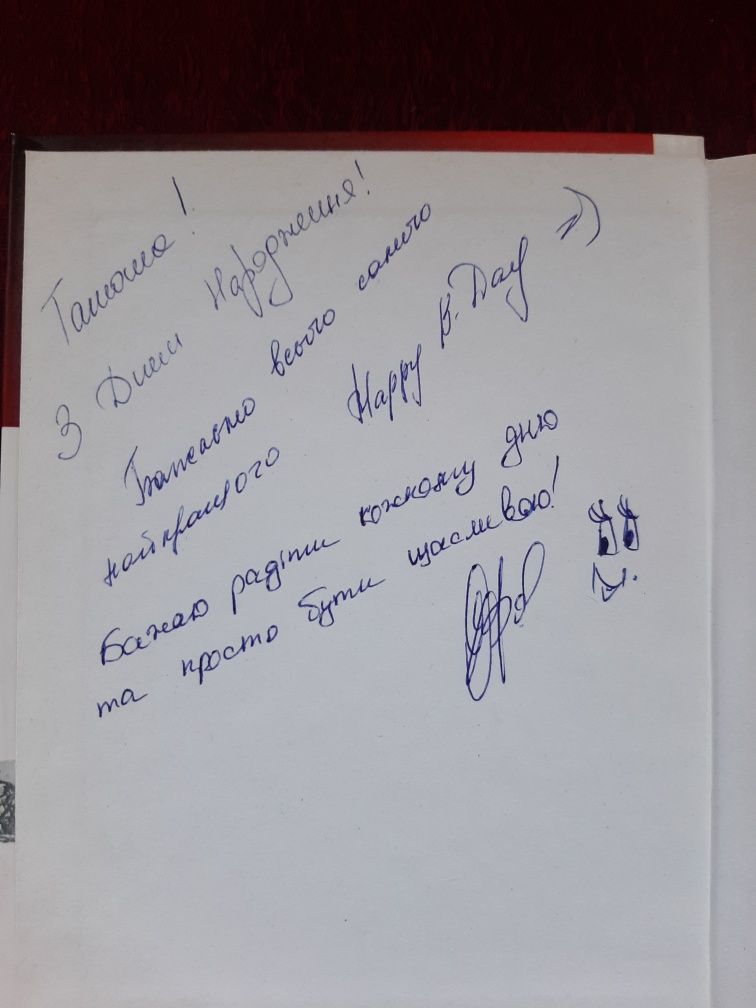 Танюша!
З Днем Народження!
Бажаємо всього самого
найкращого Happy B. Day =)
Бажаю радіти кожному дню
та просто бути щасливою!